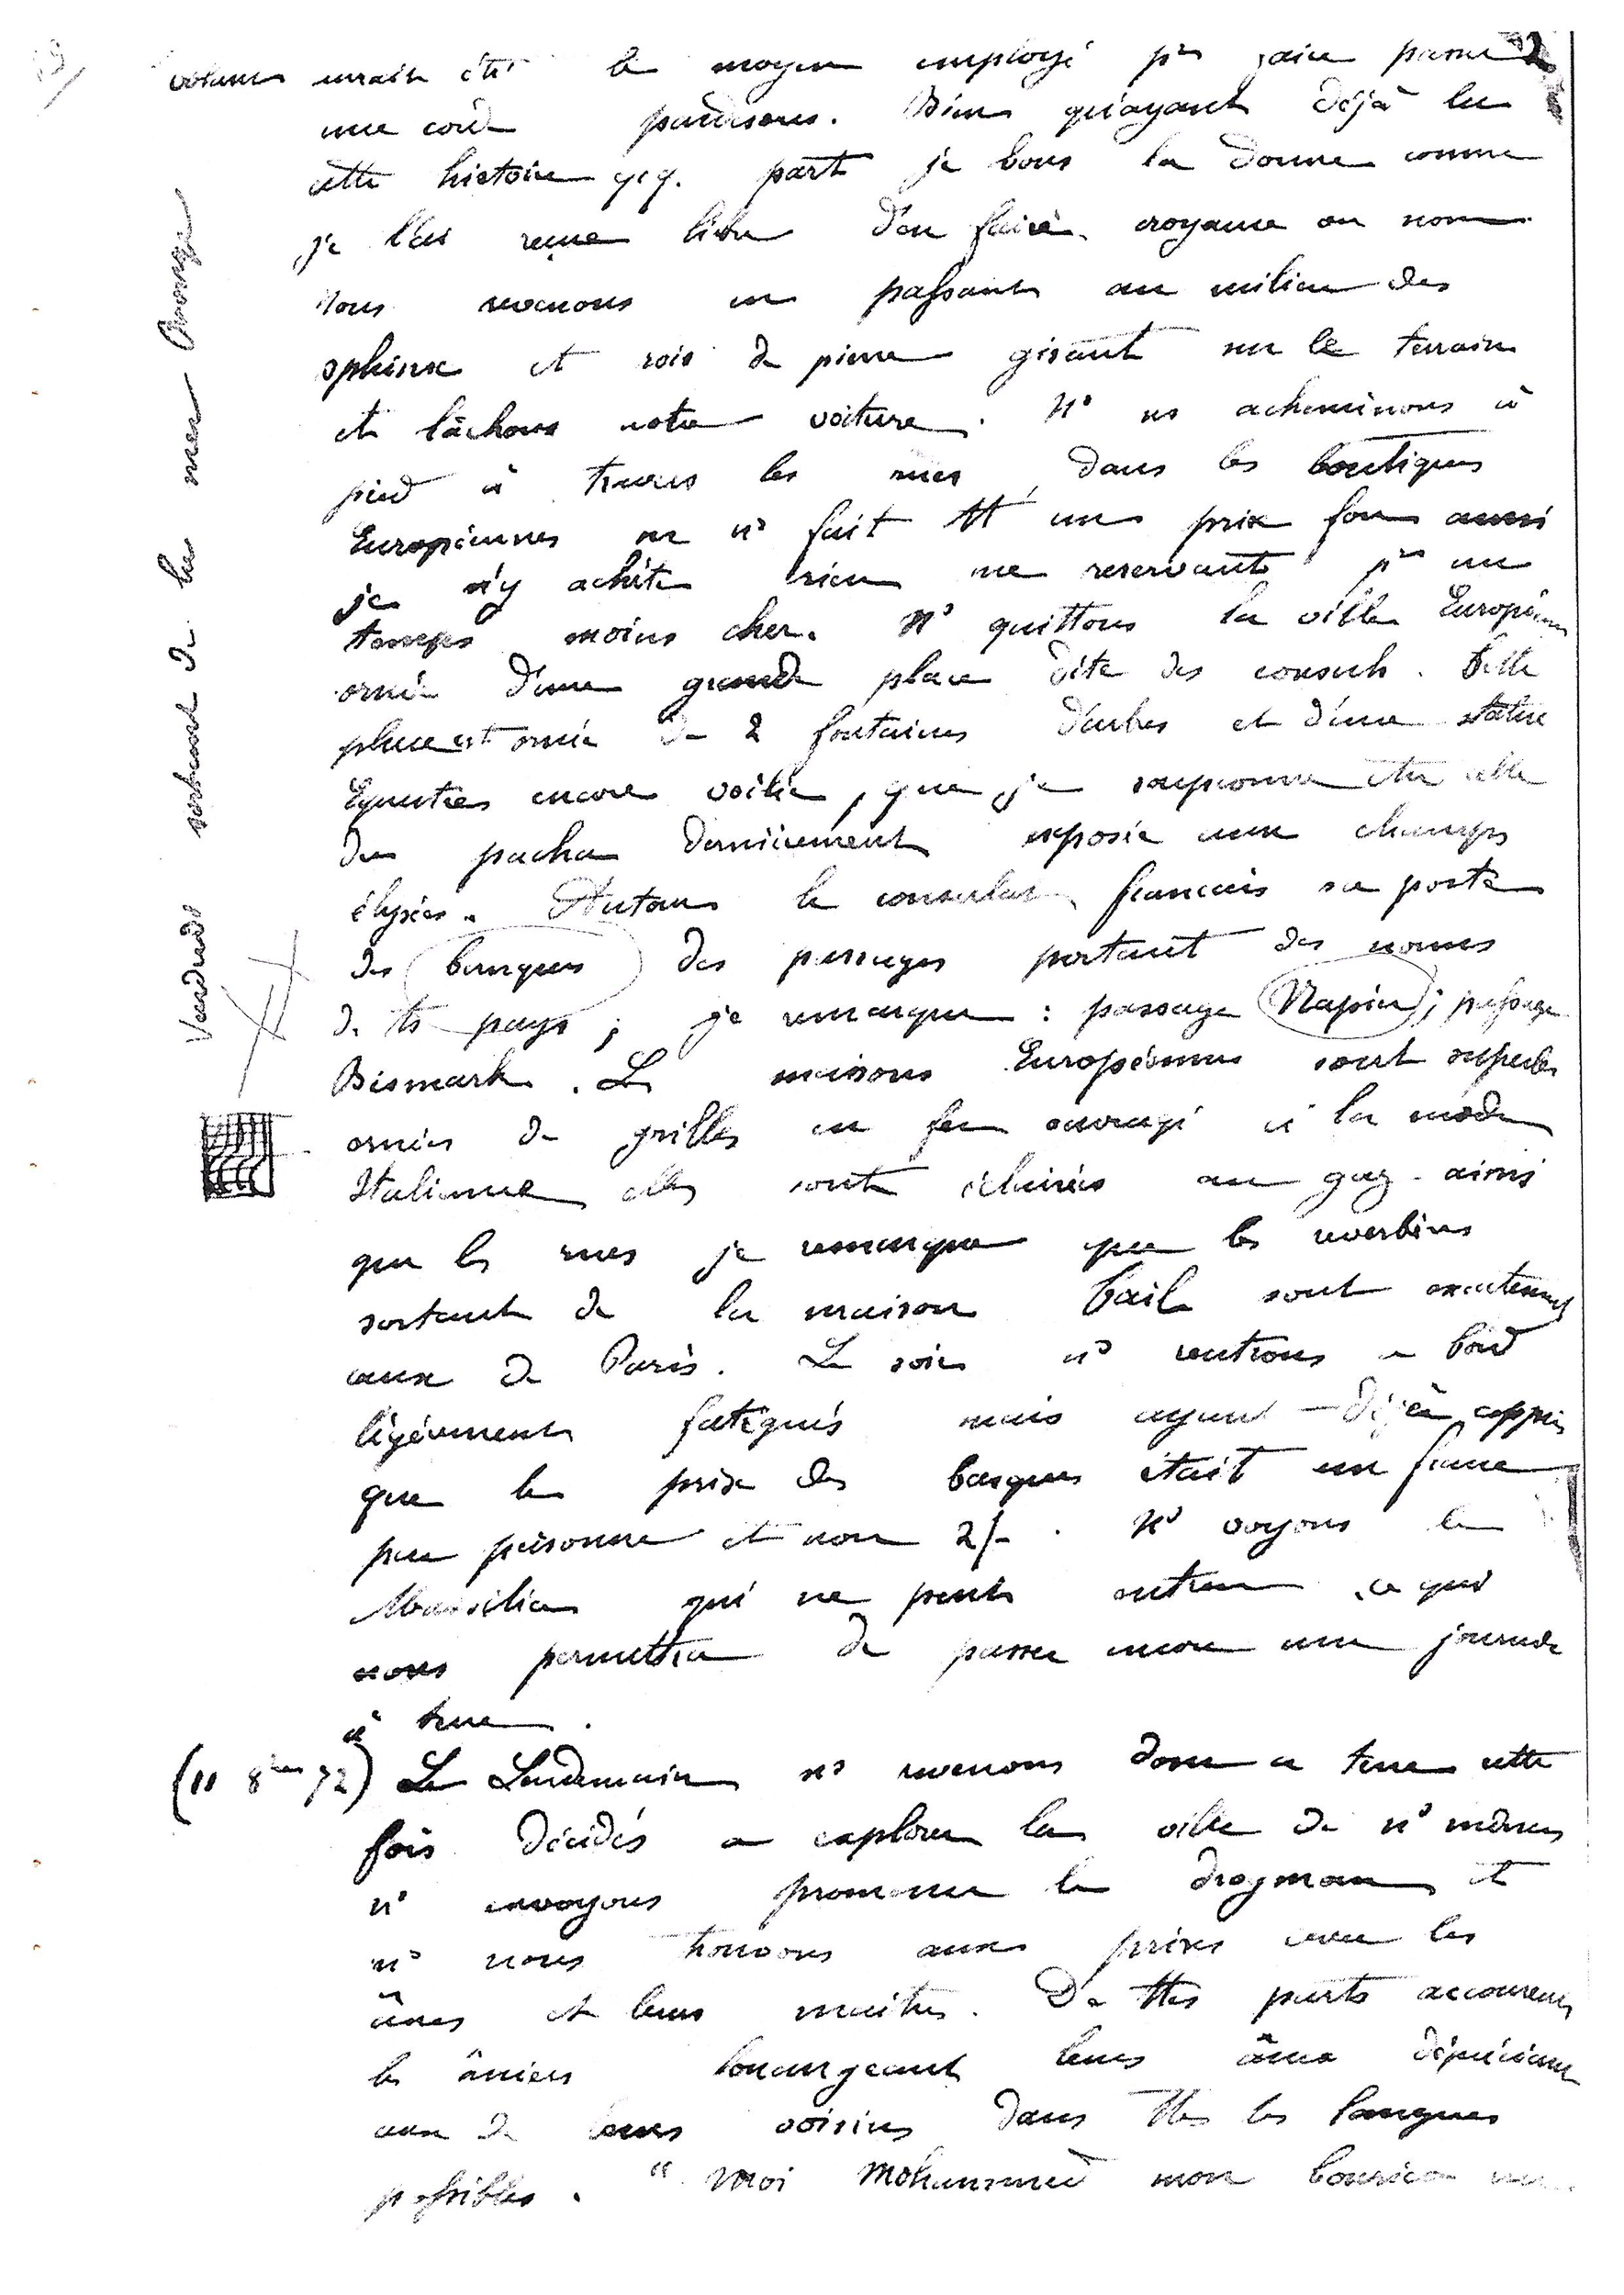 volant aurait été le moyen employé pr faire passer
une corde par dessus. Bien qu'ayant déjà lu
cette histoire qq. part je vous la donne comme
je l'ai reçue libre d'en faire croyance ou non
Nous revenons en passant au milieu des
sphinx et rois de pierre gisant sur le terrain
et lâchons notre voiture. Ns ns acheminons à
pied à travers les rues, dans les boutiques
Européennes on ns fait tt un prix fou aussi
je n'y achète rien me reservant pr un
temps moins cher. Ns quittons la ville Européenne
ornée d'une grande place dite des consuls. Cette
place est ornée de 2 fontaines d'arbres et d'une statue
Equestre encore voilée, que je soupçonne être celle
du pacha dernièrement exposée aux champs
élysées. Autour le consulat français sa poste
des banques des passages portant des noms
de ts pays ; je remarque : passage Napier ; passage
Bismark. Les maisons Européennes sont superbes
ornées de grilles en fer ouvragé à la mode
Italienne elles sont éclairées au gaz ainsi
que les rues je remarque que les reverbères
sortant de la maison sont exactement
ceux de Paris. Le soir ns rentrons a bord
légèrement fatigués mais ayant déjà appris
que le prix des barques était un franc
par personne et non 2/-. Ns voyons le
Massilia qui ne peut entrer ce qui
nous permettra de passer encore une journée
à terre.
(11 8bre 72) Le Lendemain ns revenons donc a terre cette
fois décidés a explorer la ville de ns mêmes
ns envoyons promener le drogman et
ns nous trouvons aux prises avec les
ânes et leurs maitres. De ttes parts accourent
les âniers louangeant leurs ânes dépréciant
ceux de leurs voisins dans ttes les langues
possibles. "Moi Mohammed mon bourico
sortant de la mer Orange